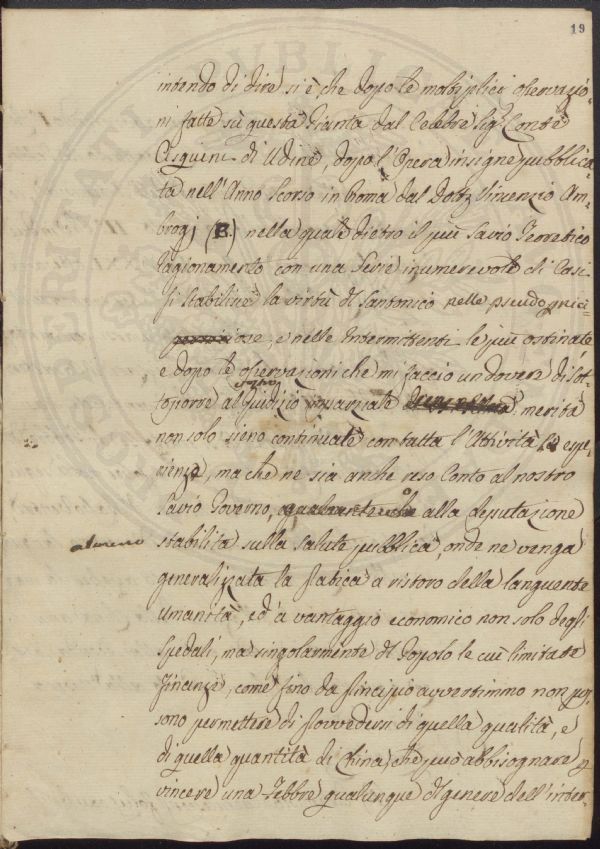 19
intendo di dire si è, che dopo le moltiplici osservazio-
ni fatte sù questa Pianta dal Celebre Sig.r Conte
Asquini di Udine, dopo l'Opera insigne pubblica-
ta nell'Anno Scorso in Roma dal Dott.r Vincenzio Am-
brogj (B.) nella quale dietro il più Savio Teoretico
ragionamento con una Serie innumerevole di Casi
si stabilisce la virtù del Santonico nelle pseudoperni-
ciose, e nelle Intermittenti le più ostinate
e dopo le osservazioni che mi faccio un dovere di sot-
toporre al giudizio imparziale merita
non solo sieno continuate con tutta l'Attività le espe-
rienze, ma che ne sia anche reso Conto al nostro
Savio Governo, o alla deputazione
almeno stabilita sulla Salute pubblica, onde ne venga
generalizzata la pratica a ristoro della languente
umanità, ed a vantaggio economico non solo degli
Spedali, ma singolarmente del Popolo le cui limitate
Finanze, come fino da principio avvertimmo non pos-
sono permettere di provvedersi di quella qualità, e
di quella quantità di China, che può abbisognare p
vincere una Febbre qualunque del genere dell'inter-